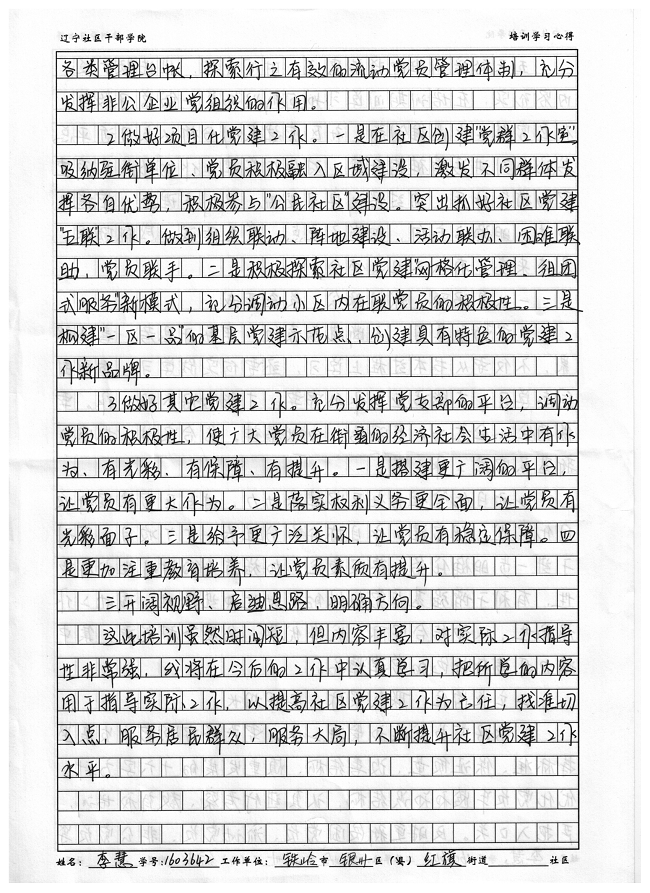 辽宁社区干部学院 培训学习心得
各类管理台帐，探索行之有效的流动党员管理体制，充分
发挥非公企业党组织的作用。
2做好项目化党建工作。一是在社区创建"党群工作室"，
吸纳驻街单位、党员积极融入区域建设，激发不同群体发
挥各自优势，积极参与"公民社区"建设。突出抓好社区党建
"五联"工作。做到组织联动、阵地建设、活动联办、困难联
助，党员联手。二是积极探索社区党建"网格化管理、组团
式服务"新模式，充分调动小区内在联党员的积极性。三是
构建"一区一品"的基层党建示范点，创建具有特色的党建工
作新品牌。
3做好其它党建工作。充分发挥党支部的平台，调动
党员的积极性，使广大党员在街面的经济社会生活中有作
为、有光彩、有保障、有提升。一是搭建更广阔的平台，
让党员有更大作为。二是落实权利义务更全面，让党员有
光彩面子。三是给予更广泛关怀，让党员有稳定保障。四
是更加注重教育培养，让党员素质有提升。
三开阔视野、启迪思路，明确方向。
这次培训虽然时间短，但内容丰富，对实际工作指导
性非常强，我将在今后的工作中认真学习，把所学的内容
用于指导实际工作，以提高社区党建工作为己任，找准切
入点，服务居民群众，服务大局，不断提升社区党建工作
水平。
姓名：李慧 学号：1603642 工作单位：铁岭市 银州区（县） 红旗街道 社区